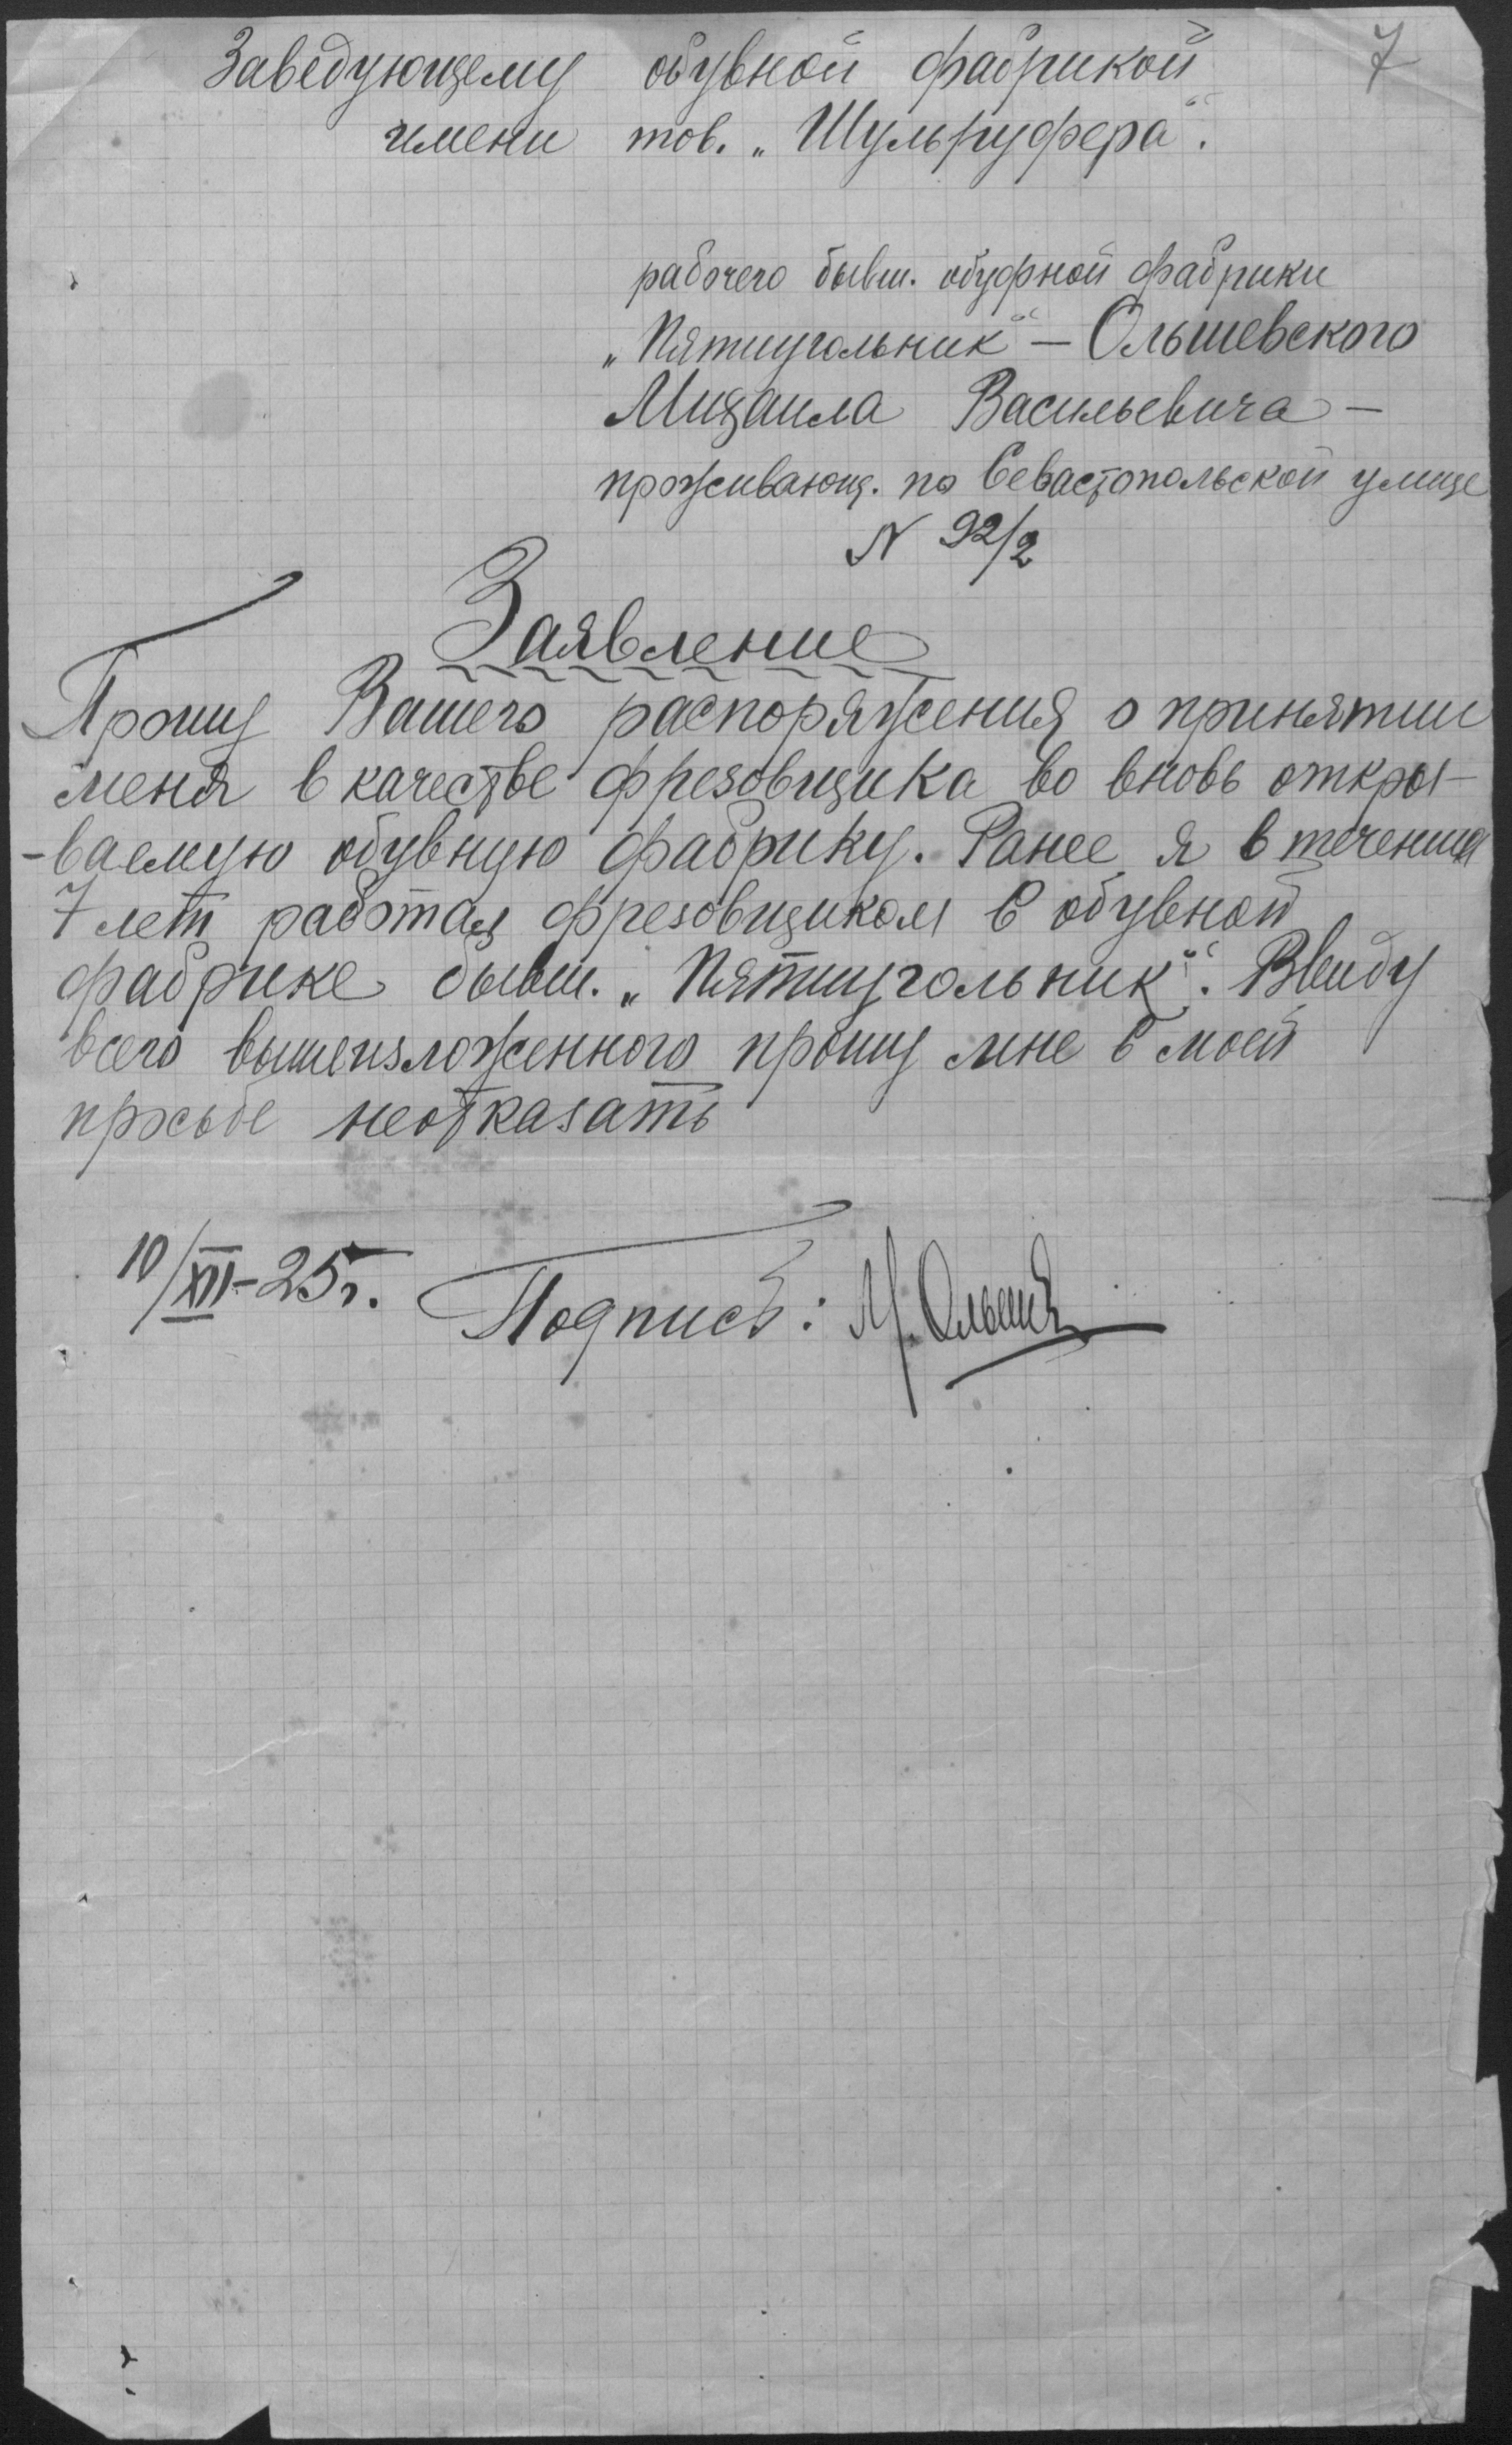 7
Заведующему обувной фабрикой
имени тов. „Шульруфера“.
рабочего бывш. обуфной фабрики
„Пятиугольник“ — Ольшевского
Михаила Васильевича —
проживающ. по Севастопольской улице
N 92/2
Заявление
Прошу Вашего распоряжения о принятии
меня в качестве фрезовщика во вновь откры-
-ваемую обувную фабрику. Ранее я в течении
7 лет работал фрезовщиком в обувной
фабрике бывш. „Пятиугольник“. Ввиду
всего вышеизложенного прошу мне в моей
просьбе неотказать
10/XII-25г. Подпись: М. Ольшев